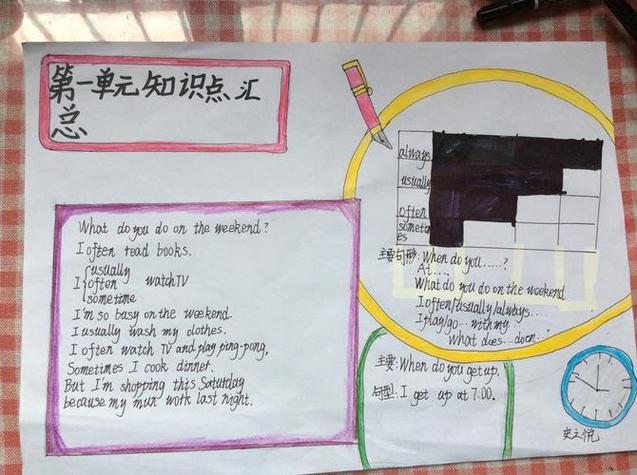 第一单元知识点汇
总
What do you do on the weekend?
I often read books.
usually
I often watch TV
sometime
I'm so busy on the weekend.
I usually wash my clothes.
I often watch TV and play ping-pong,
Sometimes I cook dinner.
But I'm shopping this Saturday
because my mun work last night.
always
usually
often
someti
es
主要句形: When do you......?
At.....
What do you do on the weekend
I often/usually/always....
I play/go... with my...
What does...do on...?
主要: When do you get up.
句型: I get up at 7:00.
史立悦